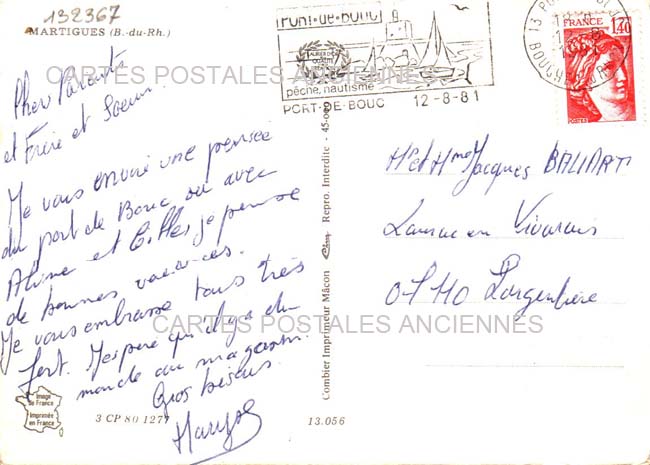 132367
MARTIGUES (B.-du-Rh.)
Chers Parents
et Frère et Soeur.
Je vous envoie une pensée
du port de Bouc où avec
et Gilles je pense
de bonnes vacances.
Je vous embrasse tous très
fort. J'espère qu'il y a du
monde au magasin.
Gros bisous.
CARTES POSTALES ANCIENNES
CARTES POSTALES ANCIENNES
Image
de France
Imprimée
en France
3 CP 80 1277
13.056
Combier Imprimeur Mâcon
Repro. Interdite - 45-000
PORT-DE-BOUC
pêche, nautisme
PORT-DE-BOUC 12-8-81
13 PORT
BOUCHES
FRANCE
1,40
Mr et Mme Jacques BALIART
en Vivarais
07110 Largentière